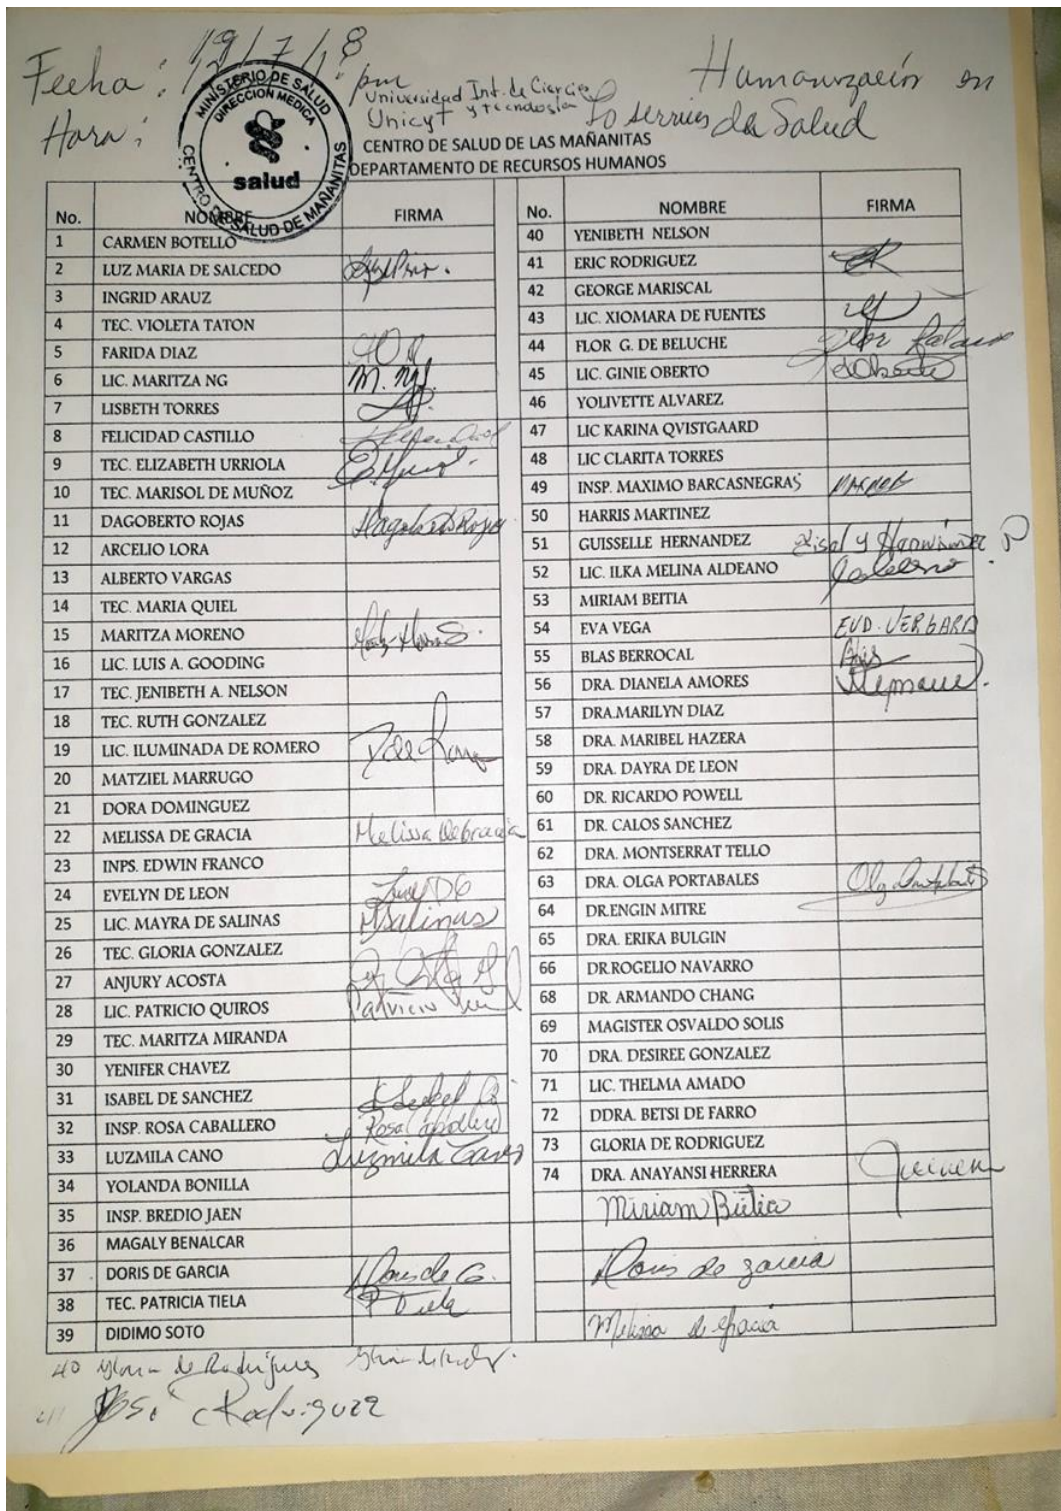 Fecha: 19/7/18
Hora: pm
Universidad Int. de Ciencias
Unicyt y tecnología
Humanización en
Lo servicios de Salud
MINISTERIO DE SALUD
DIRECCIÓN MEDICA
salud
CENTRO DE SALUD DE MAÑANITAS
CENTRO DE SALUD DE LAS MAÑANITAS
DEPARTAMENTO DE RECURSOS HUMANOS
No. NOMBRE FIRMA
1 CARMEN BOTELLO
2 LUZ MARIA DE SALCEDO
3 INGRID ARAUZ
4 TEC. VIOLETA TATON
5 FARIDA DIAZ
6 LIC. MARITZA NG M. Ng
7 LISBETH TORRES
8 FELICIDAD CASTILLO
9 TEC. ELIZABETH URRIOLA
10 TEC. MARISOL DE MUÑOZ
11 DAGOBERTO ROJAS Dagoberto Rojas
12 ARCELIO LORA
13 ALBERTO VARGAS
14 TEC. MARIA QUIEL
15 MARITZA MORENO
16 LIC. LUIS A. GOODING
17 TEC. JENIBETH A. NELSON
18 TEC. RUTH GONZALEZ
19 LIC. ILUMINADA DE ROMERO
20 MATZIEL MARRUGO
21 DORA DOMINGUEZ
22 MELISSA DE GRACIA Melissa DeGracia
23 INPS. EDWIN FRANCO
24 EVELYN DE LEON
25 LIC. MAYRA DE SALINAS MSalinas
26 TEC. GLORIA GONZALEZ
27 ANJURY ACOSTA
28 LIC. PATRICIO QUIROS Patricio
29 TEC. MARITZA MIRANDA
30 YENIFER CHAVEZ
31 ISABEL DE SANCHEZ
32 INSP. ROSA CABALLERO Rosa Caballero
33 LUZMILA CANO Luzmila Cano
34 YOLANDA BONILLA
35 INSP. BREDIO JAEN
36 MAGALY BENALCAR
37 DORIS DE GARCIA Doris de G.
38 TEC. PATRICIA TIELA P Tiela
39 DIDIMO SOTO
No. NOMBRE FIRMA
40 YENIBETH NELSON
41 ERIC RODRIGUEZ
42 GEORGE MARISCAL
43 LIC. XIOMARA DE FUENTES
44 FLOR G. DE BELUCHE
45 LIC. GINIE OBERTO
46 YOLIVETTE ALVAREZ
47 LIC KARINA QVISTGAARD
48 LIC CLARITA TORRES
49 INSP. MAXIMO BARCASNEGRAS
50 HARRIS MARTINEZ
51 GUISSELLE HERNANDEZ
52 LIC. ILKA MELINA ALDEANO
53 MIRIAM BEITIA
54 EVA VEGA
55 BLAS BERROCAL
56 DRA. DIANELA AMORES
57 DRA.MARILYN DIAZ
58 DRA. MARIBEL HAZERA
59 DRA. DAYRA DE LEON
60 DR. RICARDO POWELL
61 DR. CALOS SANCHEZ
62 DRA. MONTSERRAT TELLO
63 DRA. OLGA PORTABALES
64 DR.ENGIN MITRE
65 DRA. ERIKA BULGIN
66 DR.ROGELIO NAVARRO
68 DR. ARMANDO CHANG
69 MAGISTER OSVALDO SOLIS
70 DRA. DESIREE GONZALEZ
71 LIC. THELMA AMADO
72 DDRA. BETSI DE FARRO
73 GLORIA DE RODRIGUEZ
74 DRA. ANAYANSI HERRERA
Miriam Beitia
Doris de Garcia
Melissa de gracia
40 Gloria de Rodríguez
José Rodriguez